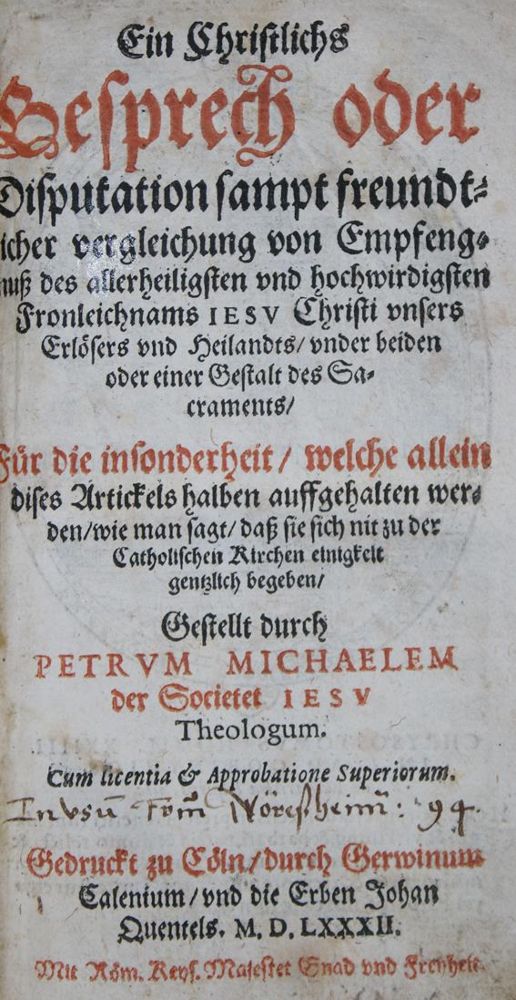 Ein Christlichs
Gesprech oder
Disputation sampt freundt-
licher vergleichung von Empfeng-
nuß des allerheiligsten vnd hochwirdigsten
Fronleichnams IESV Christi vnsers
Erlösers vnd Heilandts/ vnder beiden
oder einer Gestalt des Sa-
craments/
Für die insonderheit/ welche allein
dises Artickels halben auffgehalten wer-
den/ wie man sagt/ daß sie sich nit zu der
Catholischen Kirchen einigkeit
gentzlich begeben/
Gestellt durch
PETRVM MICHAELEM
der Societet IESV
Theologum.
Cum licentia & Approbatione Superiorum.
In usū 94.
Gedruckt zu Cöln/ durch Gerwinum
Calenium/ vnd die Erben Johan
Quentels. M. D. LXXXII.
Mit Röm. Keys. Maiestet Gnad vnd Freyheit.